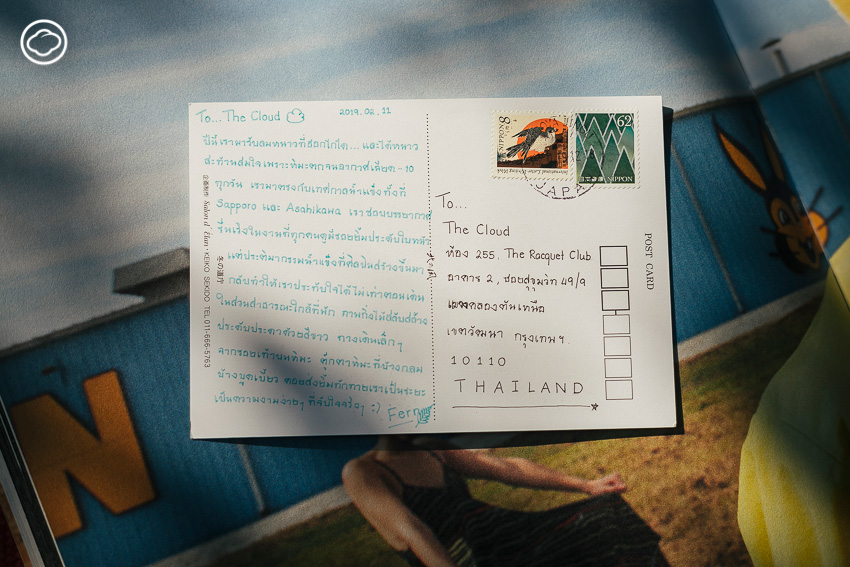 To... The Cloud
2019.02.11
ปีนี้เรามารับลมหนาวที่ฮอกไกโด...และได้หนาว
สะท้านสมใจเพราะหิมะตกจนอากาศเฉียด -10
ทุกวัน เรามาตรงกับเทศกาลน้ำแข็งทั้งที่
Sapporo และ Asahikawa เราชอบบรรยากาศ
รื่นเริงในงานที่ทุกคนดูมีรอยยิ้มประดับใบหน้า
แต่ประติมากรรมน้ำแข็งที่ศิลปินสร้างขึ้นมา
กลับทำให้เราประทับใจได้ไม่เท่าตอนเดิน
ในสวนสาธารณะใกล้ที่พัก
ประดับประดาด้วยสีขาว ทางเดินเล็กๆ
จากรอยเท้าบนหิมะ ตุ๊กตาหิมะที่บ้างกลม
บ้างบูดเบี้ยว คอยส่งยิ้มทักทายเราเป็นระยะ
เป็นความงามง่ายๆ ที่จับใจจริงๆ :)
Fern
企画制作 Salon d'Elan・KEIKO SEKIDO TEL 011-666-5763
冬の道庁
NIPPON 8
International Letter Writing Week
62
NIPPON
日本郵便
JAPA
POST CARD
To...
The Cloud
ห้อง 255, The Racquet Club
อาคาร 2, ซอยสุขุมวิท 49/9
คลองตันเหนือ
เขตวัฒนา กรุงเทพฯ
10110
THAILAND
N